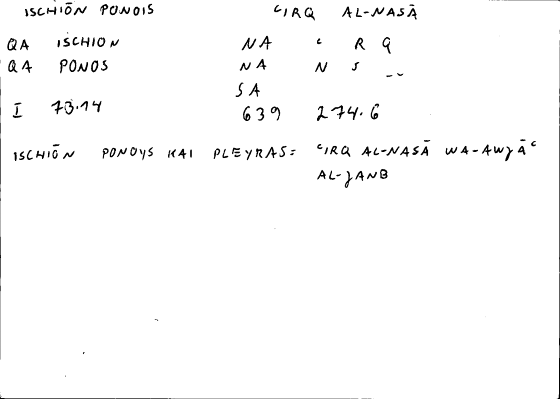 ISCHIŌN PONOIS ʿIRQ AL-NASĀ
QA ISCHION NA ʿ R Q
QA PONOS NA N S --
SA
I 73.14 639 274.6
ISCHIŌN PONOYS KAI PLEYRAS: ʿIRQ AL-NASĀ WA-AWJĀʿ
AL-JANB